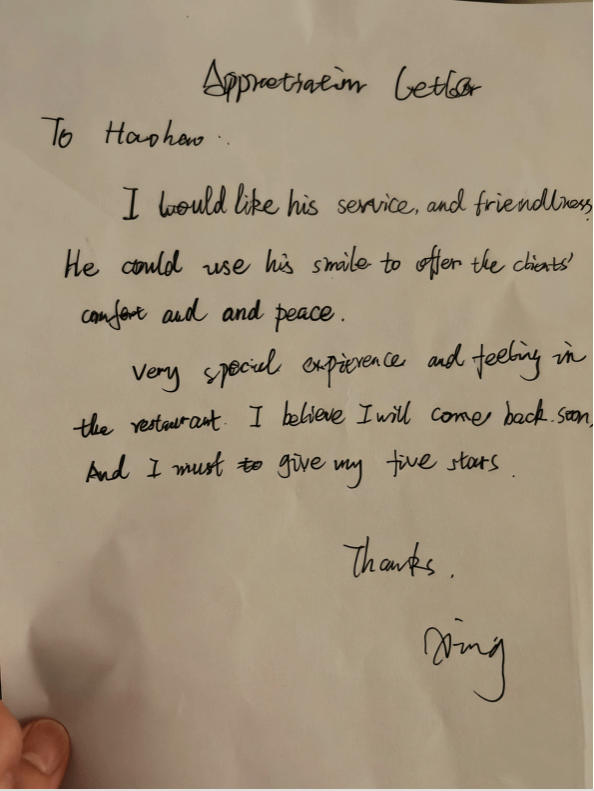 Appretiration Letter
To Haohao..
I would like his service, and friendliness
He could use his smile to offer the clients'
comfort and and peace.
Very special expierence and feeling in
the restaurant. I believe I will come back soon,
And I must to give my five stars.
Thanks.